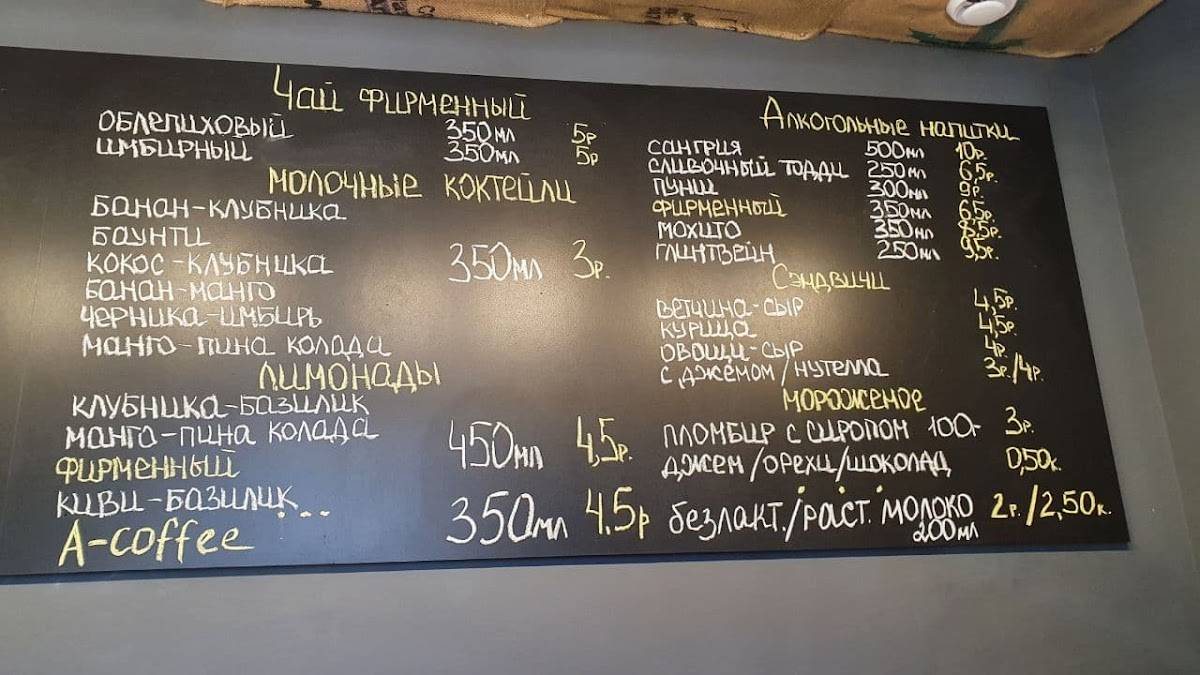 Чай фирменный
облепиховый 350мл 5р
имбирный 350мл 5р
Молочные коктейли
банан-клубника
баунти
кокос-клубника 350мл 3р.
банан-манго
черника-имбирь
манго-пина колада
Лимонады
клубника-базилик
манго-пина колада 450мл 4,5р.
фирменный
киви-базилик
A-coffee 350мл 4.5р
Алкогольные напитки
сангрия 500мл 10р.
сливочный тодди 250мл 6,5р.
пунш 300мл 9р.
фирменный 350мл 6,5р.
мохито 350мл 8,5р.
глинтвейн 250мл 9,5р.
Сэндвичи
ветчина-сыр 4,5р.
курица 4,5р.
овощи-сыр 4р.
с джемом/нутелла 3р./4р.
Мороженое
пломбир с сиропом 100.- 3р.
джем/орехи/шоколад 0,50к.
безлакт./раст. молоко 2р./2,50к.
200мл